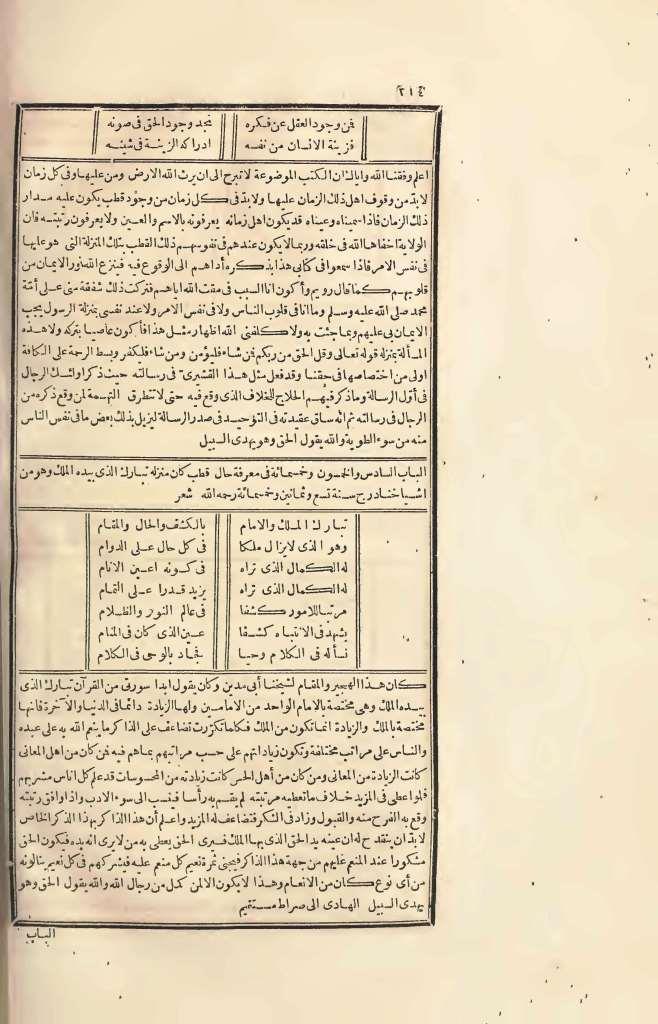 ٢١٤
فمن وجود العقل عن فكره نجد وجود الحق فى صونه
فزينة الانسان من نفسه ادراكه الزينة فى شينه
اعلم وفقنا الله واياك ان الكتب الموضوعة لا تبرح الى ان يرث الله الارض ومن عليها وفى كل زمان
لابد من وقوف اهل ذلك الزمان عليها ولابد فى كل زمان من وجود قطب يكون عليه مدار
ذلك الزمان فاذا سميناه وعيناه قد يكون اهل زمانه يعرفونه بالاسم والعين ولا يعرفون رتبته فان
الولاية اخفاها الله فى خلقه وربما لا يكون عندهم فى نفوسهم ذلك القطب بتلك المنزلة التى هو عليها
فى نفس الامر فاذا سمعوا فى كتابى هذا بذكره أداهم الى الوقوع فيه فينزع الله نور الايمان من
قلوبهم كما قال رويم وأكون انا السبب فى مقت الله اياهم فتركت ذلك شفقة منى على أمّة
محمد صلى الله عليه وسلم وما انا فى قلوب الناس ولا فى نفس الامر ولا عند نفسى بمنزلة الرسول يجب
الايمان بى عليهم وبما جئت به ولا كلفنى الله اظهار مثل هذا فأكون عاصيا بتركه ولا هذه
المسألة بمنزلة قوله تعالى وقل الحق من ربكم فمن شاء فليؤمن ومن شاء فليكفر وبسط الرحمة على الكافة
اولى من اختصاصها فى حقنا وقد فعل مثل هذا القشيرى فى رسالته حيث ذكر اولئك الرجال
فى أوّل الرسالة وما ذكر فيهم الحلاج للخلاف الذى وقع فيه حتى لا تتطرق التهمة لمن وقع ذكره من
الرجال فى رسالته ثم انه ساق عقيدته فى التوحيد فى صدر الرسالة ليزيل بذلك بعض ما فى نفس الناس
منه من سوء الطوية والله يقول الحق وهو يهدى السبيل
الباب السادس والخمسون وخمسمائة فى معرفة حال قطب كان منزله تبارك الذى بيده الملك وهو من
اشياخنا درج سنة تسع وثمانين وخمسمائة رحمه الله شعر
تبارك الملك والامام بالكشف والحال والمقام
وهو الذى لا يزال ملكا فى كل حال على الدوام
له الكمال الذى تراه فى كونه اعين الانام
له الكمال الذى تراه يزيد قدرا على التمام
مرتبا للامور كشفا فى عالم النور والظلام
يشهد فى الانتباه كشفا عين الذى كان فى المنام
نسأله فى الكلام وحيا فجاد بالوحى فى الكلام
كان هذا الهجير والمقام لشيخنا أبى مدين وكان يقول ابدا سورتى من القرآن تبارك الذى
بيده الملك وهى مختصة بالامام الواحد من الامامين ولها الزيادة دائما فى الدنيا والآخرة فانها
مختصة بالملك والزيادة انما تكون من الملك فكلما تكررت تضاعف على الذاكر ما ينعم الله به على عبده
والناس على مراتب مختلفة وتكون زيادتهم على حسب مراتبهم بما هم فيه فمن كان من اهل المعانى
كانت الزيادة من المعانى ومن كان من أهل الحس كانت زيادته من المحسوسات قد علم كل اناس مشربهم
فلو اعطى فى المزيد خلاف ما تعطيه مرتبته لم يقم به رأسا فينسب الى سوء الادب واذا وافق رتبته
وقع به الفرح منه والقبول وزاد فى الشكر فتضاعف له المزيد واعلم أن هذا الذاكر بهذا الذكر الخاص
لابد ان ينقدح له ان عينه يد الحق الذى بها الملك فيرى الحق يعطى به من لا يرى انه يده فيكون الحق
مشكورا عند المنعم عليهم من جهة هذا الذاكر فيجنى ثمرة نعيم كل منعم عليه فيشركهم فى كل نعيم ينالونه
من أى نوع كان من الانعام وهذا لا يكون الا لمن كمل من رجال الله والله يقول الحق وهو
يهدى السبيل الهادى الى صراط مستقيم
الباب